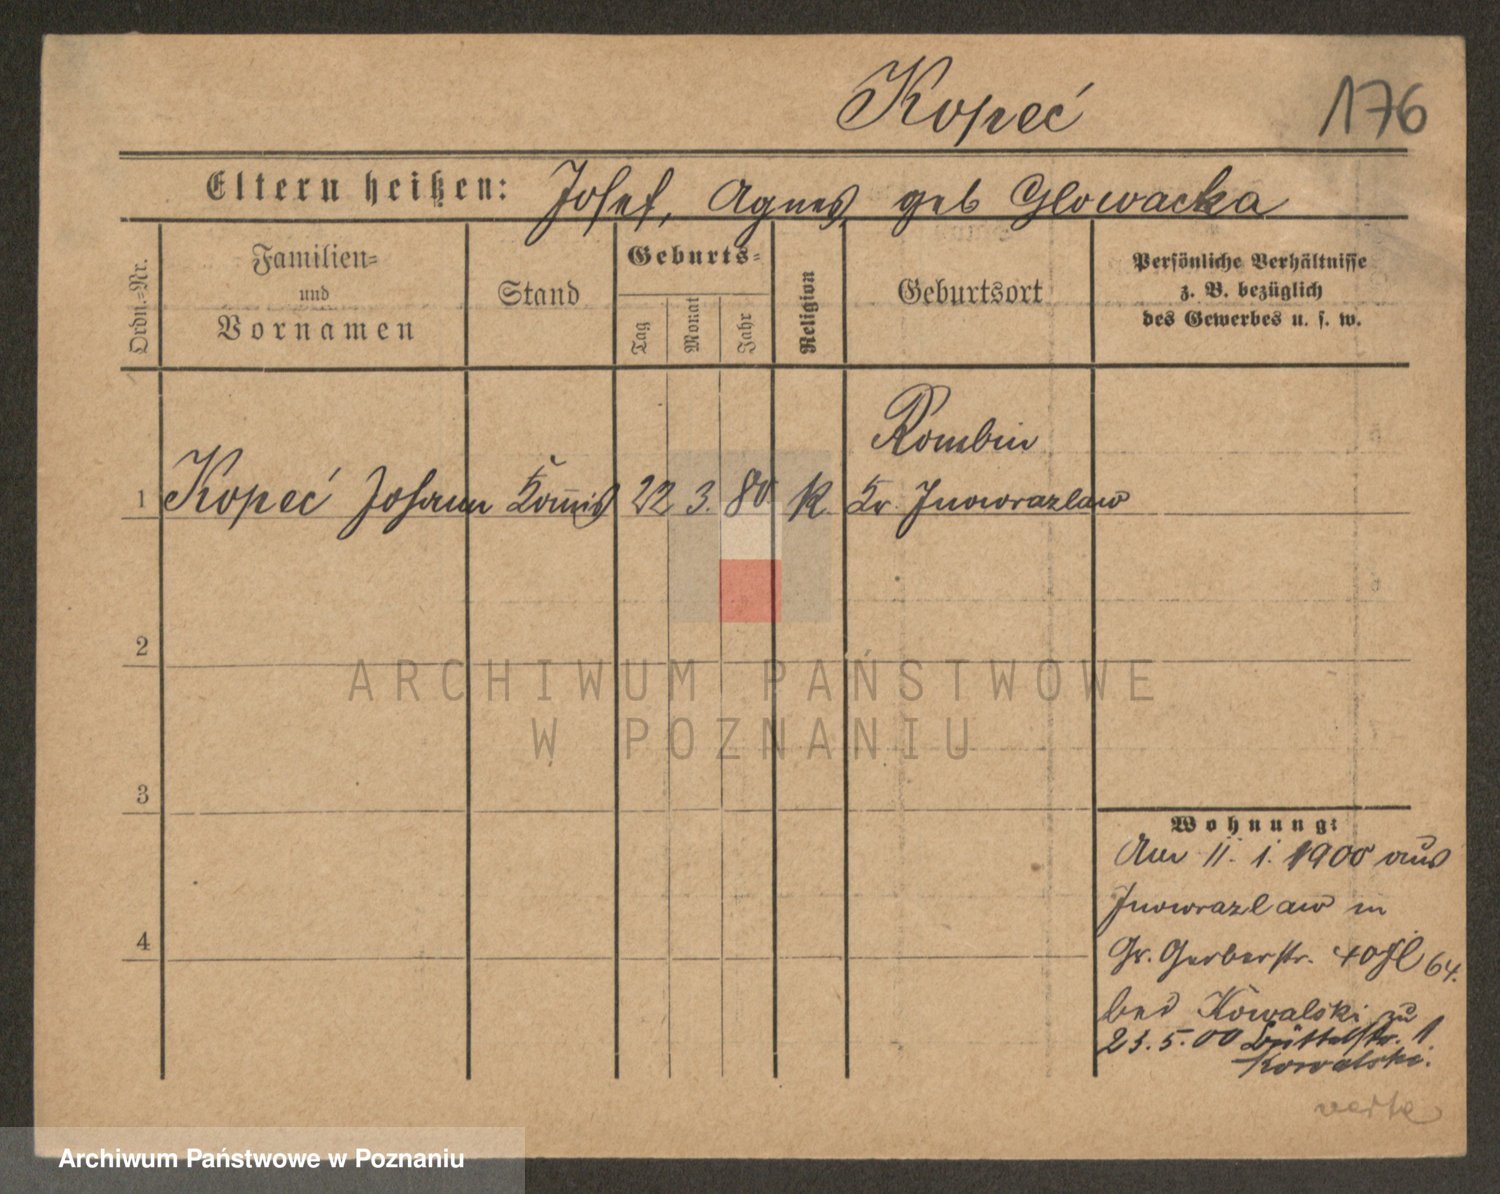 Kopeć
176
Eltern heißen: Josef, Agnes, geb Glowacka
Ordn.=Nr.
Familien=
und
Vornamen
Stand
Geburts=
Tag
Monat
Jahr
Religion
Geburtsort
Persönliche Verhältnisse
z. B. bezüglich
des Gewerbes u. s. w.
Rombin
1 Kopeć Johann Kom̄is 22 3. 80. k. Kr. Inowrazlaw
2
3
4
Wohnung:
Am 11. 1. 1900 aus
Inowrazlaw in
Gr. Gerberstr. 40 64.
bei Kowalski zu
23. 5. 00 Büttelstr. 1
Kowalski.
verte
ARCHIWUM PAŃSTWOWE
W POZNANIU
Archiwum Państwowe w Poznaniu